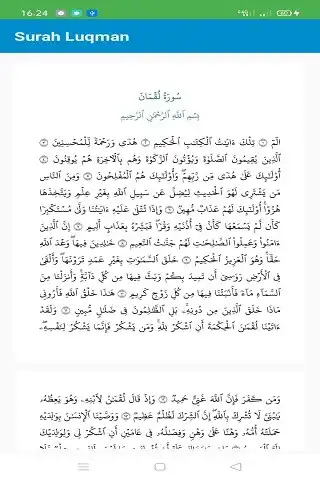 16.24
Surah Luqman
سُورَةُ لُقْمَانَ
بِسْمِ ٱللَّهِ ٱلرَّحْمَٰنِ ٱلرَّحِيمِ
الٓمٓ ١ تِلْكَ ءَايَٰتُ ٱلْكِتَٰبِ ٱلْحَكِيمِ ٢ هُدًى وَرَحْمَةً لِّلْمُحْسِنِينَ ٣
ٱلَّذِينَ يُقِيمُونَ ٱلصَّلَوٰةَ وَيُؤْتُونَ ٱلزَّكَوٰةَ وَهُم بِٱلْأٓخِرَةِ هُمْ يُوقِنُونَ ٤
أُوْلَٰٓئِكَ عَلَىٰ هُدًى مِّن رَّبِّهِمْ وَأُوْلَٰٓئِكَ هُمُ ٱلْمُفْلِحُونَ ٥ وَمِنَ ٱلنَّاسِ
مَن يَشْتَرِى لَهْوَ ٱلْحَدِيثِ لِيُضِلَّ عَن سَبِيلِ ٱللَّهِ بِغَيْرِ عِلْمٍ وَيَتَّخِذَهَا
هُزُوًا أُوْلَٰٓئِكَ لَهُمْ عَذَابٌ مُّهِينٌ ٦ وَإِذَا تُتْلَىٰ عَلَيْهِ ءَايَٰتُنَا وَلَّىٰ مُسْتَكْبِرًا
كَأَن لَّمْ يَسْمَعْهَا كَأَنَّ فِىٓ أُذُنَيْهِ وَقْرًا فَبَشِّرْهُ بِعَذَابٍ أَلِيمٍ ٧ إِنَّ ٱلَّذِينَ
ءَامَنُوا۟ وَعَمِلُوا۟ ٱلصَّٰلِحَٰتِ لَهُمْ جَنَّٰتُ ٱلنَّعِيمِ ٨ خَٰلِدِينَ فِيهَا وَعْدَ ٱللَّهِ
حَقًّا وَهُوَ ٱلْعَزِيزُ ٱلْحَكِيمُ ٩ خَلَقَ ٱلسَّمَٰوَٰتِ بِغَيْرِ عَمَدٍ تَرَوْنَهَا وَأَلْقَىٰ
فِى ٱلْأَرْضِ رَوَٰسِىَ أَن تَمِيدَ بِكُمْ وَبَثَّ فِيهَا مِن كُلِّ دَآبَّةٍ وَأَنزَلْنَا مِنَ
ٱلسَّمَآءِ مَآءً فَأَنۢبَتْنَا فِيهَا مِن كُلِّ زَوْجٍ كَرِيمٍ ١٠ هَٰذَا خَلْقُ ٱللَّهِ فَأَرُونِى
مَاذَا خَلَقَ ٱلَّذِينَ مِن دُونِهِۦ بَلِ ٱلظَّٰلِمُونَ فِى ضَلَٰلٍ مُّبِينٍ ١١ وَلَقَدْ
ءَاتَيْنَا لُقْمَٰنَ ٱلْحِكْمَةَ أَنِ ٱشْكُرْ لِلَّهِ وَمَن يَشْكُرْ فَإِنَّمَا يَشْكُرُ لِنَفْسِهِۦ
وَمَن كَفَرَ فَإِنَّ ٱللَّهَ غَنِىٌّ حَمِيدٌ ١٢ وَإِذْ قَالَ لُقْمَٰنُ لِٱبْنِهِۦ وَهُوَ يَعِظُهُۥ
يَٰبُنَىَّ لَا تُشْرِكْ بِٱللَّهِ إِنَّ ٱلشِّرْكَ لَظُلْمٌ عَظِيمٌ ١٣ وَوَصَّيْنَا ٱلْإِنسَٰنَ بِوَٰلِدَيْهِ
حَمَلَتْهُ أُمُّهُۥ وَهْنًا عَلَىٰ وَهْنٍ وَفِصَٰلُهُۥ فِى عَامَيْنِ أَنِ ٱشْكُرْ لِى وَلِوَٰلِدَيْكَ